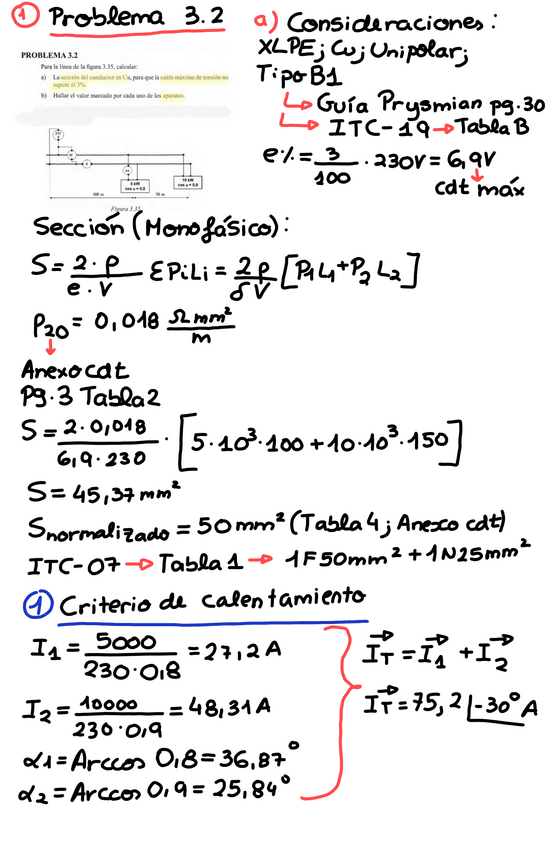 ① Problema 3.2
PROBLEMA 3.2
Para la línea de la figura 3.35, calcular:
a) La sección del conductor en Cu, para que la caída máxima de tensión no
supere el 3%.
b) Hallar el valor marcado por cada uno de los aparatos.
5 kW
cos φ = 0,8
10 kW
cos φ = 0,9
100 m
50 m
Figura 3.35
a) Consideraciones:
XLPE; Cu; Unipolar;
Tipo B1
↳ Guía Prysmian pg.30
↳ ITC-19 → Tabla B
e% = 3/100 · 230V = 6,9V
cdt máx
Sección (Monofásico):
S = 2·ρ/e·V ΣPiLi = 2ρ/δV [P1L1+P2L2]
ρ20 = 0,018 Ωmm²/m
Anexo cdt
Pg.3 Tabla2
S = 2·0,018/6,9·230 · [5·10³·100 + 10·10³·150]
S = 45,37 mm²
Snormalizado = 50mm² (Tabla 4; Anexo cdt)
ITC-07 → Tabla 1 → 1F50mm² + 1N25mm²
① Criterio de calentamiento
I1 = 5000/230·0,8 = 27,2 A
I2 = 10000/230·0,9 = 48,31 A
α1 = Arccos 0,8 = 36,87°
α2 = Arccos 0,9 = 25,84°
IT = I1 + I2
IT = 75,2 |-30° A